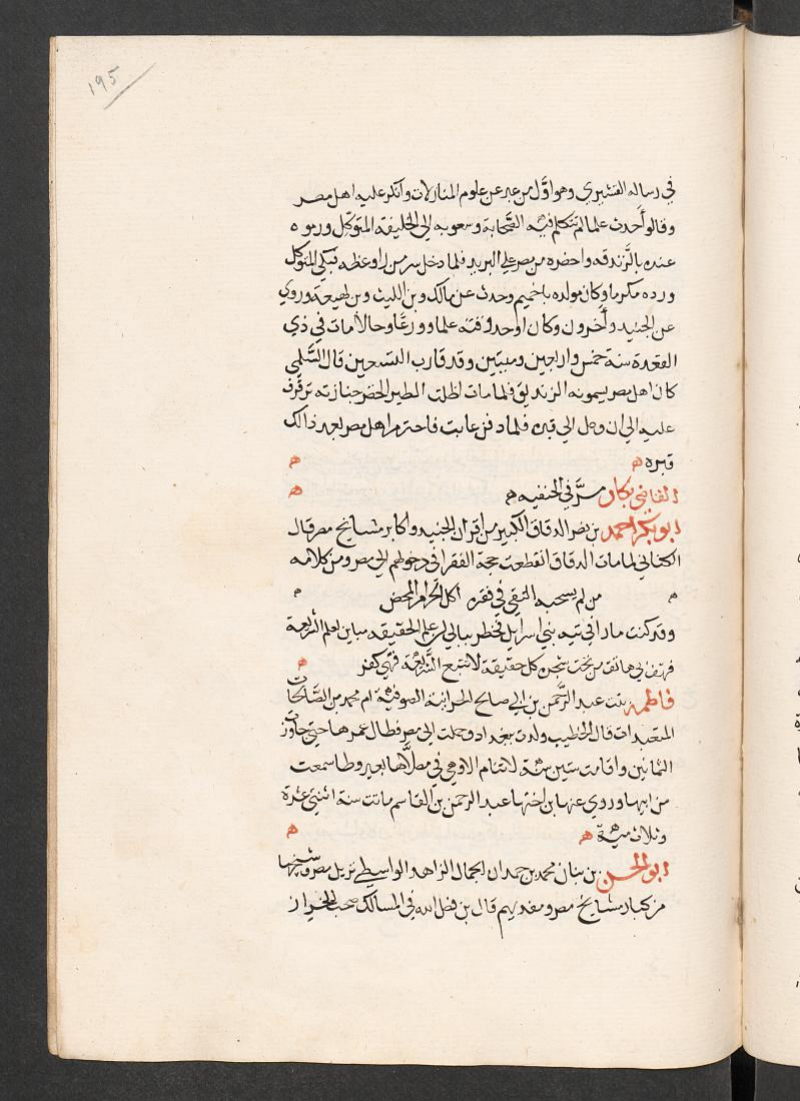 195
في رساله القشيري وهو اوّل من عبر عن علوم المنازلات وانكر عليه اهل مصر
وقالوا أحدث علما لم تتكلم فيه الصّحابة وسعوبه الى الخليفه المتوكّل ورموه
عنده بالزندقه واحضره من مصر على البريد فلما دخل سر من را وعظه فبكى المتوكل
ورده مكرما وكان مولده باخميم وحدث عن مالك وبن الليث وبن لهيعه وروي
عن الجنيد وأخرون وكان اوحد وقته علما وورعًا وحالا مات في ذي
القعده سنة خمس واربعين وميتين وقد قارب التسعين قال السّلمي
كان اهل مصر يسمونه الزنديق فلما مات اظلت الطير الخضر جنازته ترفرف
عليه الى ان وصل الى قبره فلما دفن غابت فاحترم اهل مصر بعد ذالك
قبره ه ه
القاضي بكار مرّ في الحنفيه ه ه
ابو بكر احمد بن نصر الدقاق الكبير من اقران الجنيد واكابر مشايخ مصر قال
الكتاني لما مات الدقاق انقطعت حجة الفقرا في دخولهم الى مصر ومن كلامه
ه من لم يصحبه التقي في فقره اكل الحرام المحض ه
وقد كنت مارا في تيه بني اسرايل فخطر ببالي ان علم الحقيقه مباين لعلم الشريعة
فهتف بي هاتف من تحت شجره كل حقيقة لا تتبع الشّريعة فهي كفر ه
فاطمه بنت عبد الرّحمن بن ابي صالح الحرانية الصوفية ام محمد من الصّالحات
المتعبدات قال الخطيب ولدت ببغداد وحملت الى مصر فطال عمرها حتى جاوزت
الثمانين واقامت ستين سنة لا تنام الا وهي في مصلّاها بغير وطا سمعت
من ابيها وروي عنها بن اختها عبد الرحمن بن القاسم ماتت سنة اثنتي عشرة
وثلاث مية ه ه
ابو الحسن بن بنان محمد بن حمدان الجمال الزاهد الواسطي نزيل مصر وشيخها
من كبار مشايخ مصر ومقدميهم قال بن فضل الله في المسالك صحب الخراز